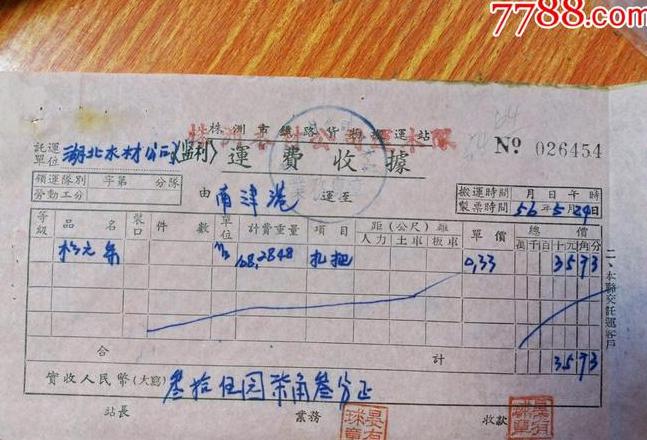 7788.com
株洲市鐵路貨物搬運站
運費收據
Nº 026454
託運單位 湖北木材公司(监利)
領運隊別 字第 分隊
勞動工分
由 南津港 運至
搬運時間 月 日 午 時
製票時間 56年5月29日
等級 品名 裝口 件數 單位 計費重量 項目 距(公尺)離 人力 土車 板車 單價 總價 萬千百十元角分
杉元条 M³ 108.2848 扎把 0.33 3573
合計 3573
實收人民幣(大寫) 叁拾伍园柒角叁分正
站長 業務 收款
二、本聯交託運客戶